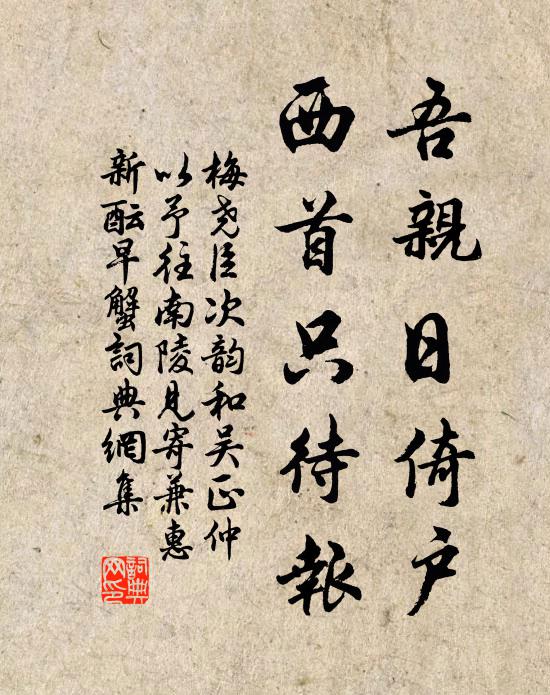 吾親日倚户
西首只待報
梅堯臣次韵和吴正仲
以予往南陵見寄兼惠
新酝早蟹詞典網集
詞典
网印